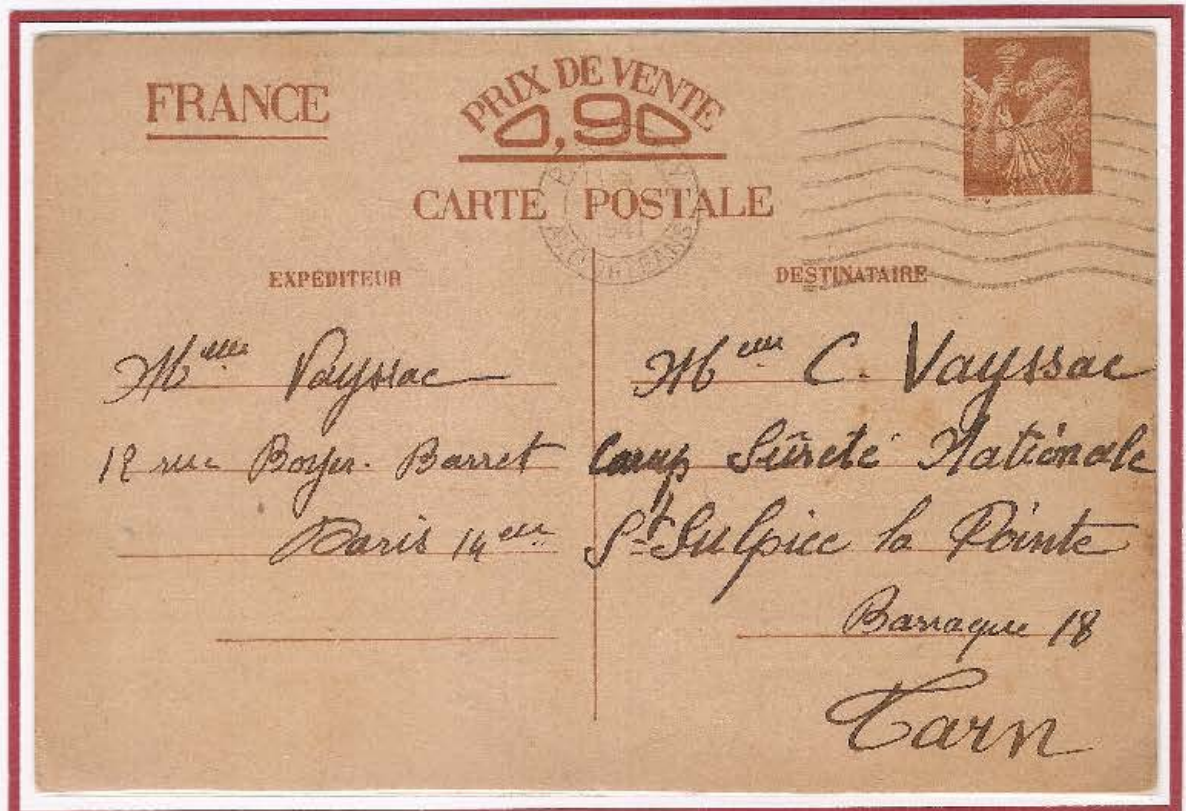 FRANCE
PRIX DE VENTE
0,90
CARTE POSTALE
EXPÉDITEUR
Mme Vayssac
12 rue Boyer-Barret
Paris 14em
DESTINATAIRE
C. Vayssac
Camp Sûreté Nationale
St Sulpice la Pointe
Barraque 18
Tarn